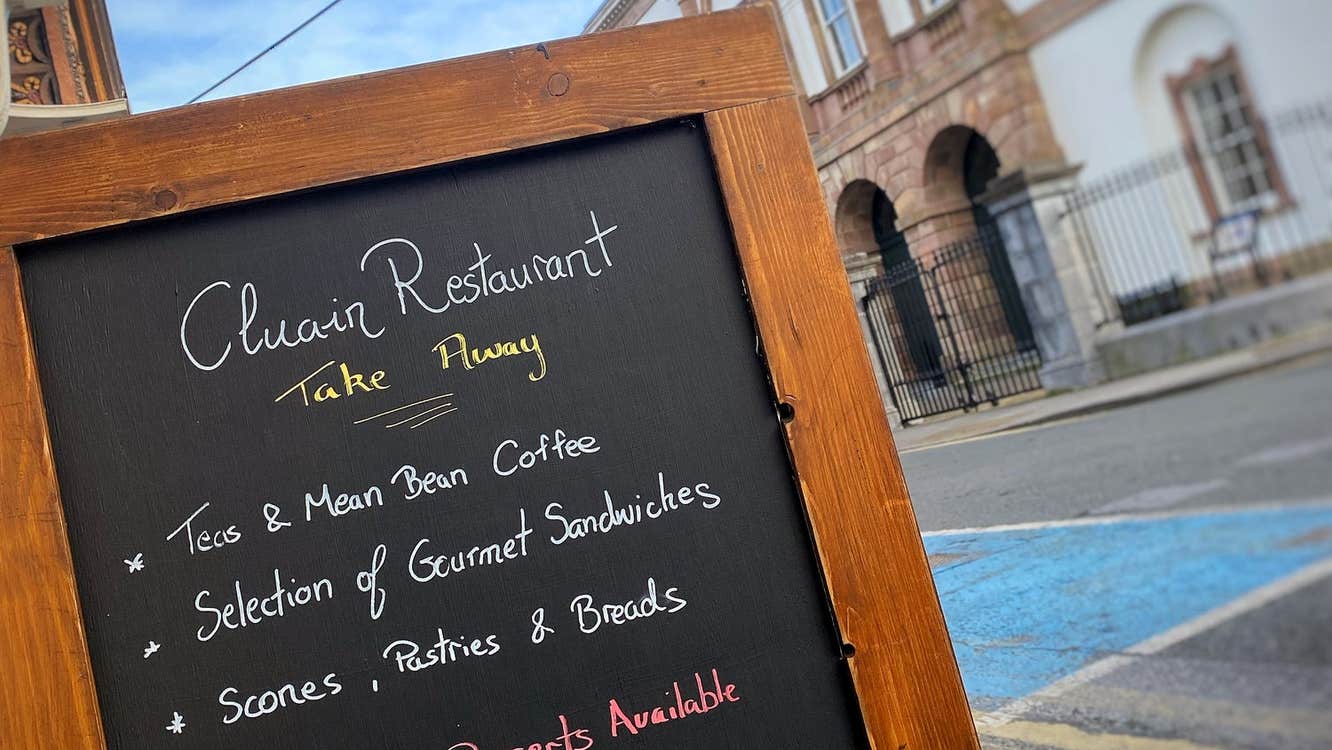 Cluain Restaurant
Take Away
* Teas & Mean Bean Coffee
* Selection of Gourmet Sandwiches
* Scones, Pastries & Breads
Available